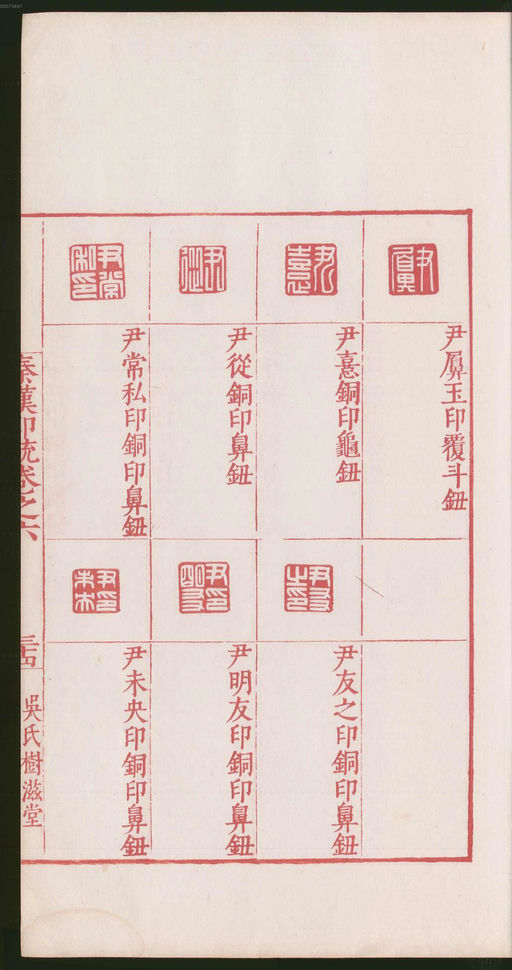 00073467
尹屓玉印覆斗鈕
尹憙銅印龜鈕
尹從銅印鼻鈕
尹常私印銅印鼻鈕
尹友之印銅印鼻鈕
尹明友印銅印鼻鈕
尹未央印銅印鼻鈕
秦漢印統卷之六
吳氏樹滋堂